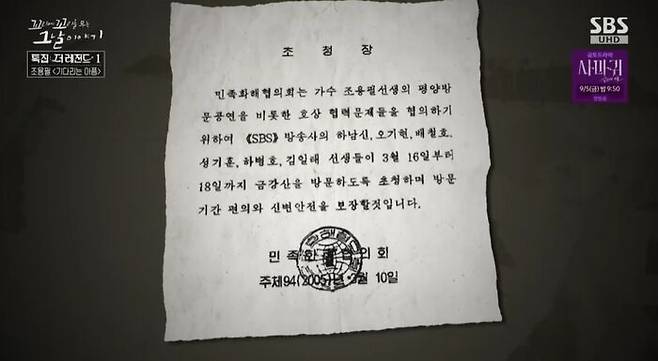 꼬리에 꼬리를 무는
그날 이야기
특집 더 레전드 1
조용필 <기다리는 아픔>
SBS
UHD
금토드라마
사마귀
9/5(금) 밤 9:50
초 청 장
민족화해협의회는 가수 조용필선생의 평양방
문공연을 비롯한 호상 협력문제들을 협의하기
위하여 《SBS》방송사의 하남신, 오기현, 배철호,
성기훈, 하병호, 김일태 선생들이 3월 16일부터
18일까지 금강산을 방문하도록 초청하며 방문
기간 편의와 신변안전을 보장할것입니다.
민족화 협의회
주체94(2005)년 월 10일